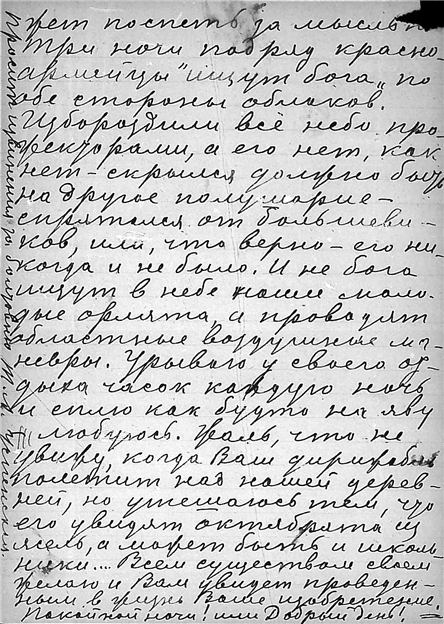 жет поспеть за мыслью.
Три ночи подряд красно-
армейцы "ищут бога" по
обе стороны облаков.
Избороздили всё небо про-
жекторами, а его нет, как
нет - скрылся должно быть
на другое полушарие -
спрятался от большеви-
ков, или, что верно - его ни-
когда и не было. И не бога
ищут в небе наши моло-
дые орлята, а проводят
областные воздушные ма-
невры. Урываю у своего от-
дыха часок каждую ночь
и сплю как будто на яву
любуюсь. Жаль, что не
увижу, когда Ваш дирижабль
полетит над нашей дерев-
ней, но утешаюсь тем, что
его увидят октябрята из
ясель, а может быть и школь-
ники... Всем существом своем
желаю и Вам увидеть проведен-
ным в жизнь Ваше изобретение.
Покойной ночи! или Добрый день!
Просит извинения за